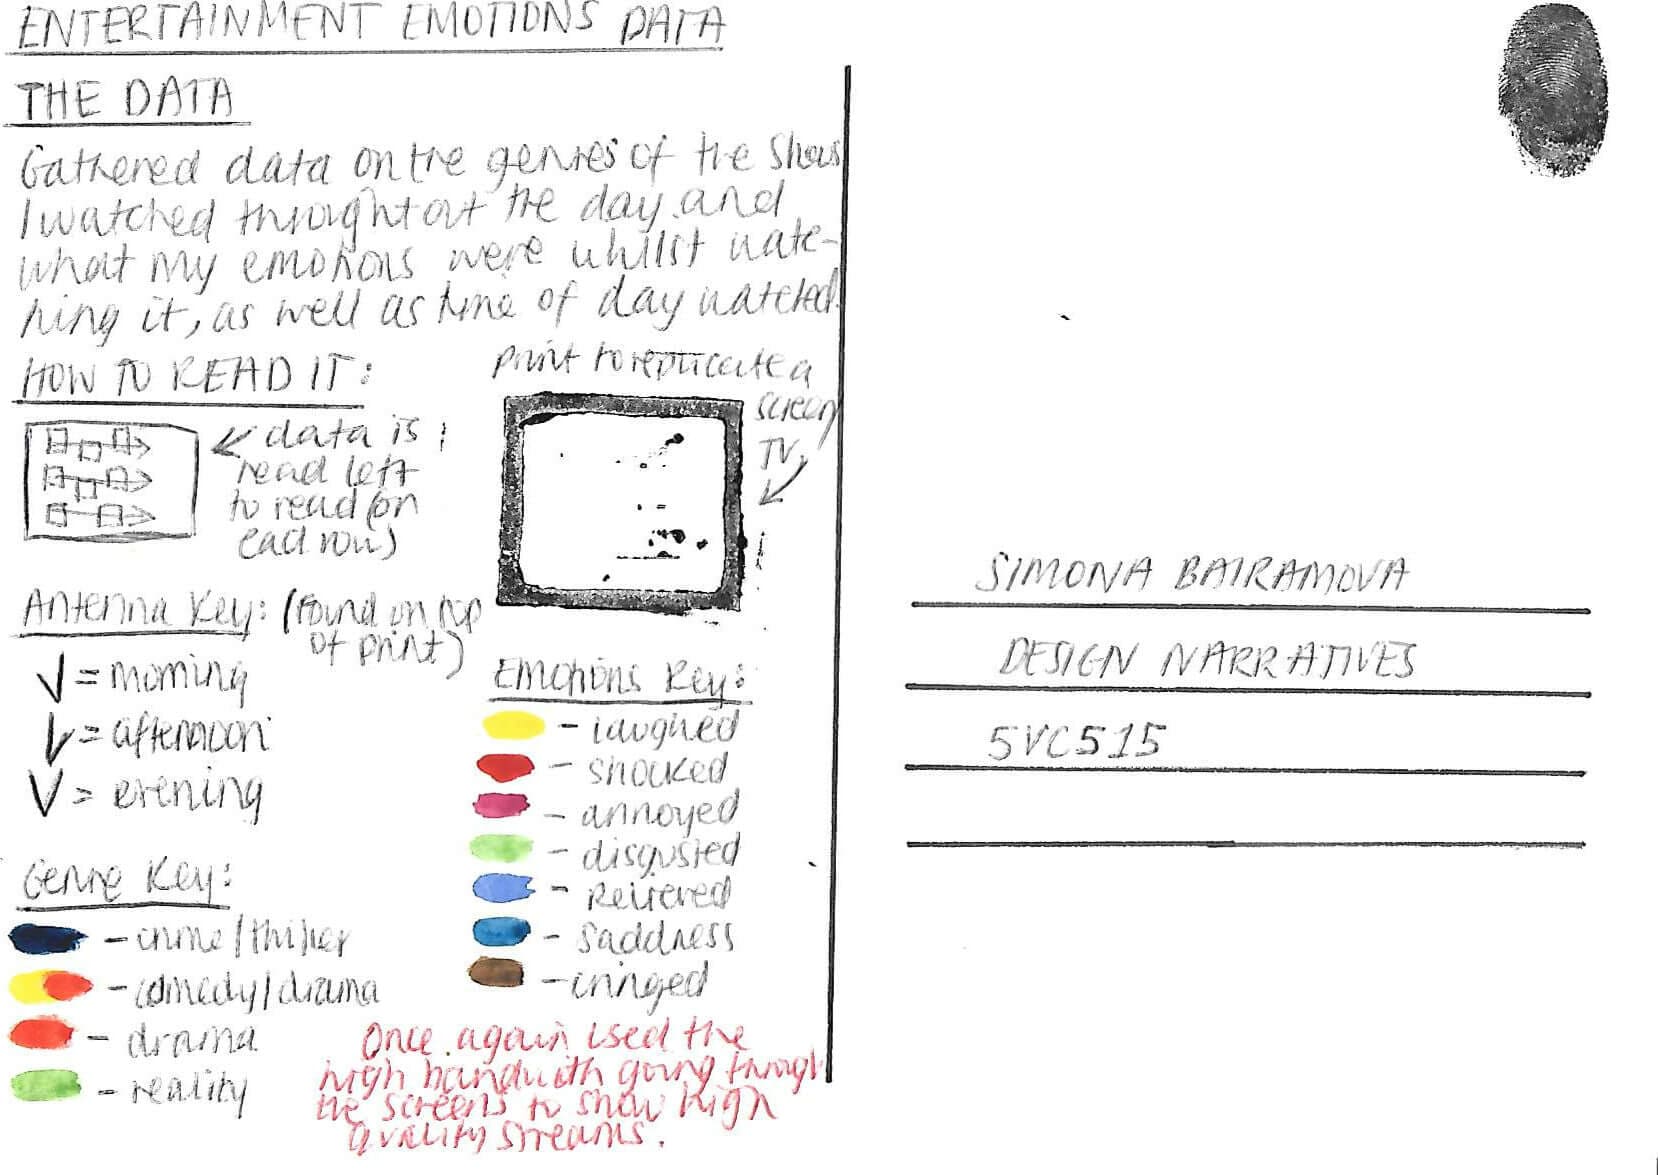 ENTERTAINMENT EMOTIONS DATA
THE DATA
Gathered data on the genres of the shows
I watched throughtout the day and
what my emotions were whilst watc-
hing it, as well as time of day watched.
HOW TO READ IT:
data is
read left
to read (on
each row)
print to replicate a
screen
TV
Antenna Key: (found on top
of print)
= morning
= afternoon
= evening
Genre Key:
- crime/thriller
- comedy/drama
- drama
- reality
Emotions Key:
- laughed
- shocked
- annoyed
- disgusted
- Relieved
- saddness
- cringed
Once again used the
high bandwidth going through
the screens to show high
quality streams.
SIMONA BAIRAMOVA
DESIGN NARRATIVES
5VC515